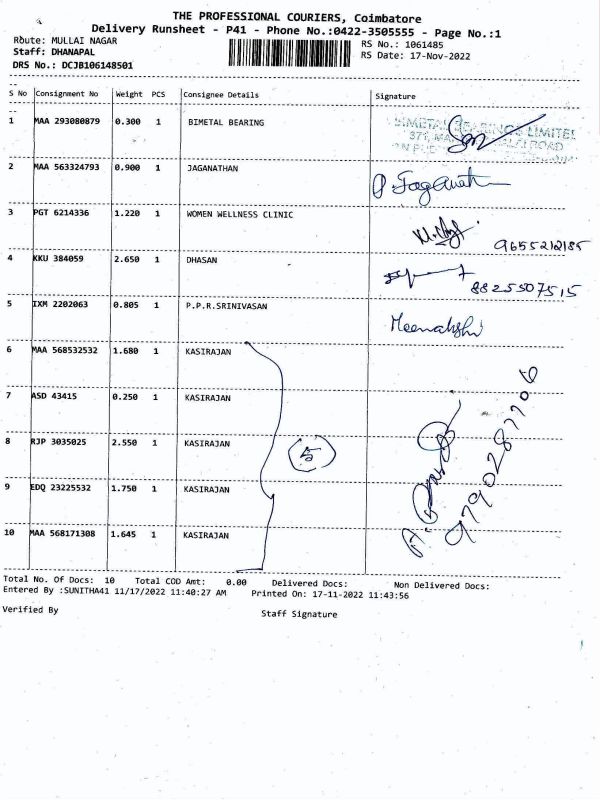 THE PROFESSIONAL COURIERS, Coimbatore
Delivery Runsheet - P41 - Phone No.:0422-3505555 - Page No.:1
Route: MULLAI NAGAR
RS No.: 1061485
Staff: DHANAPAL
RS Date: 17-Nov-2022
DRS No.: DCJB106148501
S No Consignment No Weight PCS Consignee Details Signature
1 MAA 293080879 0.300 1 BIMETAL BEARING
BIMETAL BEARINGS LIMITED
371, ROAD
2 MAA 563324793 0.900 1 JAGANATHAN P. Jaganath
3 PGT 6214336 1.220 1 WOMEN WELLNESS CLINIC
9655212185
4 KKU 384059 2.650 1 DHASAN
8825507515
5 IXM 2202063 0.805 1 P.P.R.SRINIVASAN Meenakshi
6 MAA 568532532 1.680 1 KASIRAJAN
7 ASD 43415 0.250 1 KASIRAJAN
8 RJP 3035025 2.550 1 KASIRAJAN
5
9 EDQ 23225532 1.750 1 KASIRAJAN
10 MAA 568171308 1.645 1 KASIRAJAN
9790287706
Total No. Of Docs: 10 Total COD Amt: 0.00 Delivered Docs: Non Delivered Docs:
Entered By :SUNITHA41 11/17/2022 11:40:27 AM Printed On: 17-11-2022 11:43:56
Verified By
Staff Signature